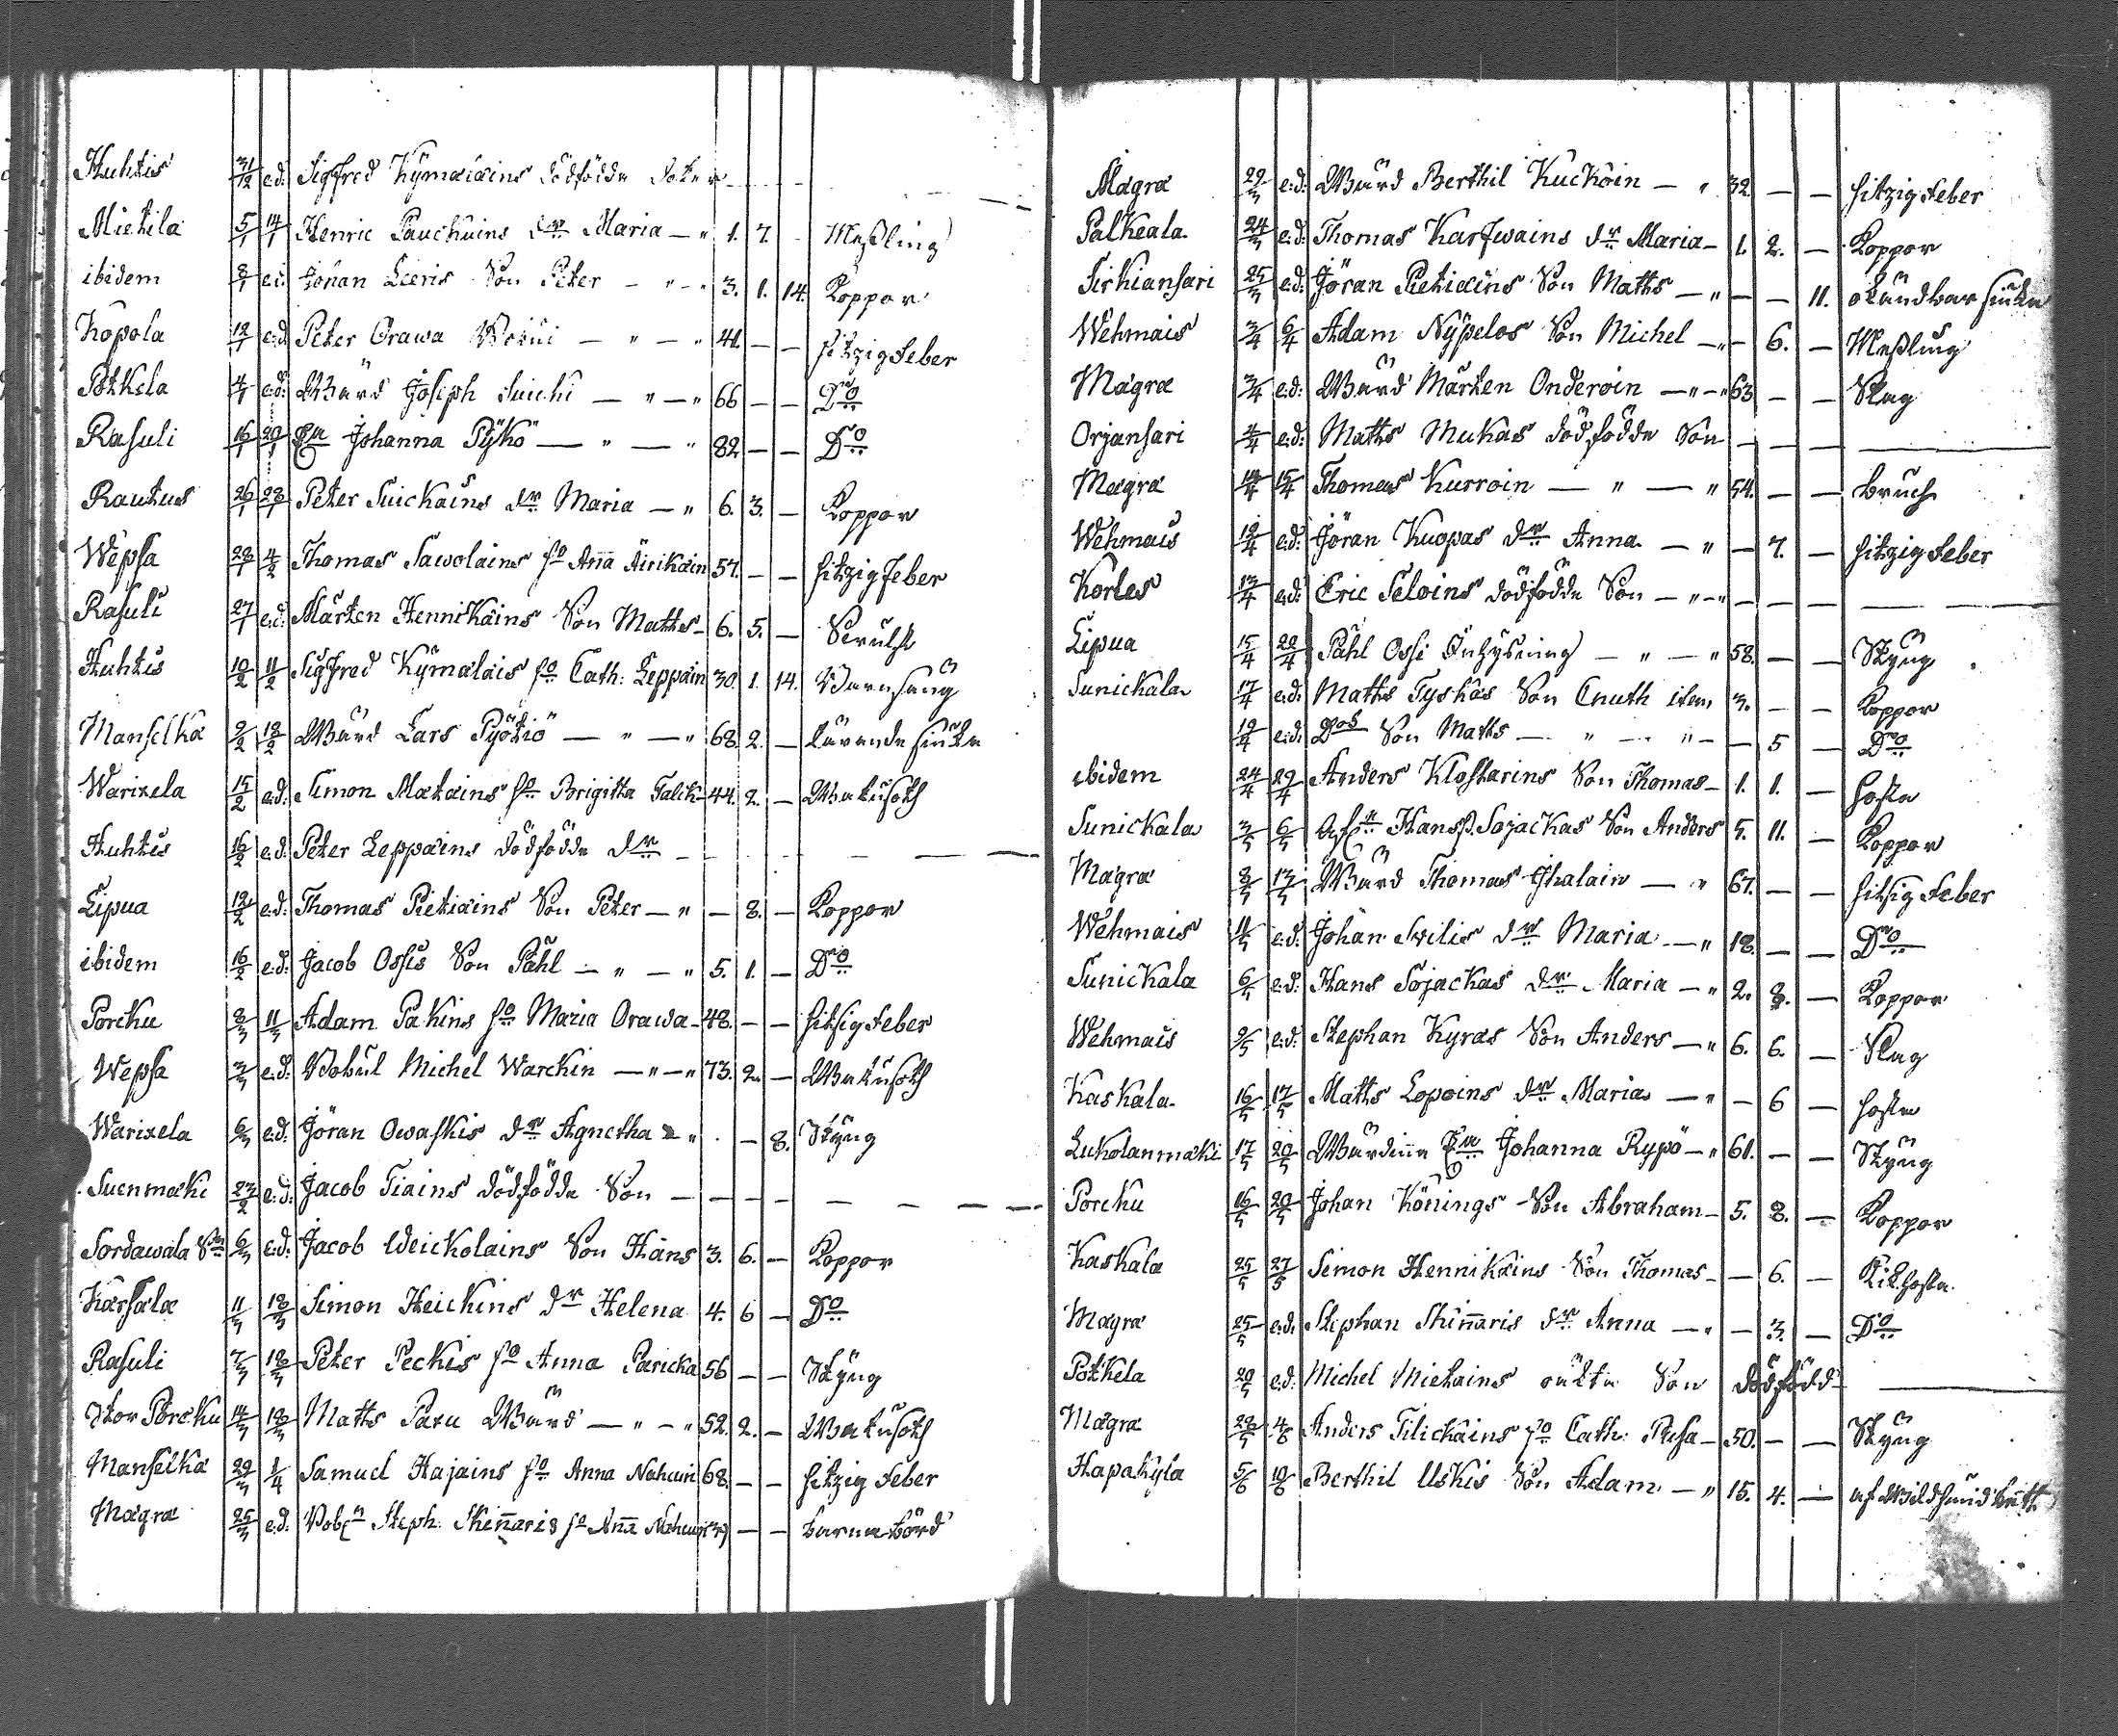 Huhtis 31/12 e.d. Sigfred Kymäläins dödfödde doter
Mietila 5/1 14/1 Henric Pauchuins dr Maria — " 1. 7. Meßling
ibidem 8/1 e.d. Jöran Leeris Son Peter — " — " 3. 1. 14. Koppor
Kopola 12/1 e.d. Peter Orawa — " — " 41. — — hitzig feber
Potkela 4/1 e.d. Wärd Joseph Suicki — " — " 66 — — Do
Rasuli 16/1 20/1 En Johanna Pÿkö — " — " 82 — — Do
Rautus 26/1 28/1 Peter Suickains dr Maria — " 6. 3. — Koppor
Wepsa 28/1 4/2 Thomas Sawolains ho Aña Äirikäin 57. — — hitzig feber
Rasuli 27/1 e.d. Mårten Hennikäins Son Matts — 6. 5. — Swulst
Huhtis 10/2 11/2 Sigfred Kymäläis ho Cath: Leppäin 30 1. 14. Barnsäng
Manselkä 9/2 18/2 Wärd Lars Pyötiö — " — " 68. 2. — tärande siuka
Warixela 15/2 e.d. Simon Matains ho Brigitta Talik — 44. 2. — Watusoth
Huhtis 16/2 e.d. Peter Leppäins dödfödde dr — —
Lipua 12/2 e.d. Thomas Pietiäins Son Peter — " — 8. — Koppor
ibidem 16/2 e.d. Jacob Ossis Son Påhl — " — " 5. 1. — Do
Porcku 8/3 11/3 Adam Pakins ho Maria Orawa — 48. — — hitsig feber
Wepsa 3/3 e.d. Michel Warckin — " — " 73. 2. — Watusoth
Warixela 6/3 e.d. Jöran Owaskis dr Agnetha " — 8. Styng
Suenmäki 23/2 e.d. Jacob Tiains dödfödde Son — — — —
Sordawala 6/3 e.d. Jacob Weickolains Son Hans 3. 6. — Koppor
Karsala 11/3 18/3 Simon Heickins dr Helena 4. 6 — Do
Rasuli 7/3 18/3 Peter Peckis ho Anna Paricka 56 — — Styng
Stor Porcku 14/3 18/3 Matts Paxu Wärd — " — " 52. 2. — Watusoth
Manselkä 29/3 1/4 Samuel Hajains ho Anna 68. — — hitzig feber
Mägrä 25/3 e.d. Steph: Skiñaris ho Aña — — barnabörd
Mägrä 22/3 e.d. Wärd Berthil Kuckoin — " 32. — — hitzig feber
Palkeala 24/3 e.d. Thomas Karfwains dr Maria — 1. 2. — Koppor
Sirkiansari 25/3 e.d. Jöran Pietiäins Son Matts — " — — 11. okundbar siuka
Wehmais 3/4 6/4 Adam Nÿpelos Son Michel — " — 6. — Meßling
Mägrä 3/4 e.d. Wärd Mårten Onderoin — " — " 63 — — Slag
Orjansari 4/4 e.d. Matts Mukas dödfödde Son — — —
Mägrä 14/4 15/4 Thomas Kurroin — " — " 54. — — bruch
Wehmais 12/4 e.d. Jöran Kuopas dr Anna — " — 7. — hitzig feber
Korles 13/4 e.d. Eric Seloins dödfödde Son — " — " — — —
Lipua 15/4 22/4 Påhl Ossi Inhysning — " — " 58. — — Styng
Sunickala 17/4 e.d. Matts Tyskäs Son Cnuth item 3. — — Koppor
19/4 e.d. Dos Son Matts — " — " — — 5 — Do
ibidem 24/4 29/4 Anders Klostarins Son Thomas — 1. 1. — hosta
Sunickala 3/5 6/5 Hans S. Sojackas Son Anders 5. 11. — Koppor
Mägrä 8/5 13/5 Wärd Thomas Ihalain — " 67. — — hitsig feber
Wehmais 11/5 e.d. Johan Swilis dr Maria — " 18. — — Do
Sunickala 6/5 e.d. Hans Sojackas dr Maria — " 2. 8. — Koppor
Wehmais 9/5 e.d. Stephan Kyräs Son Anders — " 6. 6. — Slag
Kaskala 16/5 17/5 Matts Lopoins dr Maria — " — 6 — hosta
Lukolanmäki 17/5 20/5 Wärdiña En Johanna Rypö — " 61. — — Styng
Porcku 16/5 20/5 Johan Könings Son Abraham — 5. 8. — Koppor
Kaskala 25/5 27/5 Simon Hennikäins Son Thomas — — 6. — Kikhosta
Mägrä 25/5 e.d. Stephan Skiñaris dr Anna — " — 3. — Do
Potkela 29/5 e.d. Michel Mietains oäkta Son dödfödd
Mägrä 28/5 4/6 Anders Tilickains ho Cath: Pusa — 50. — — Styng
Hapakyla 5/6 10/6 Berthil Uskis Son Adam — " 15. 4. —